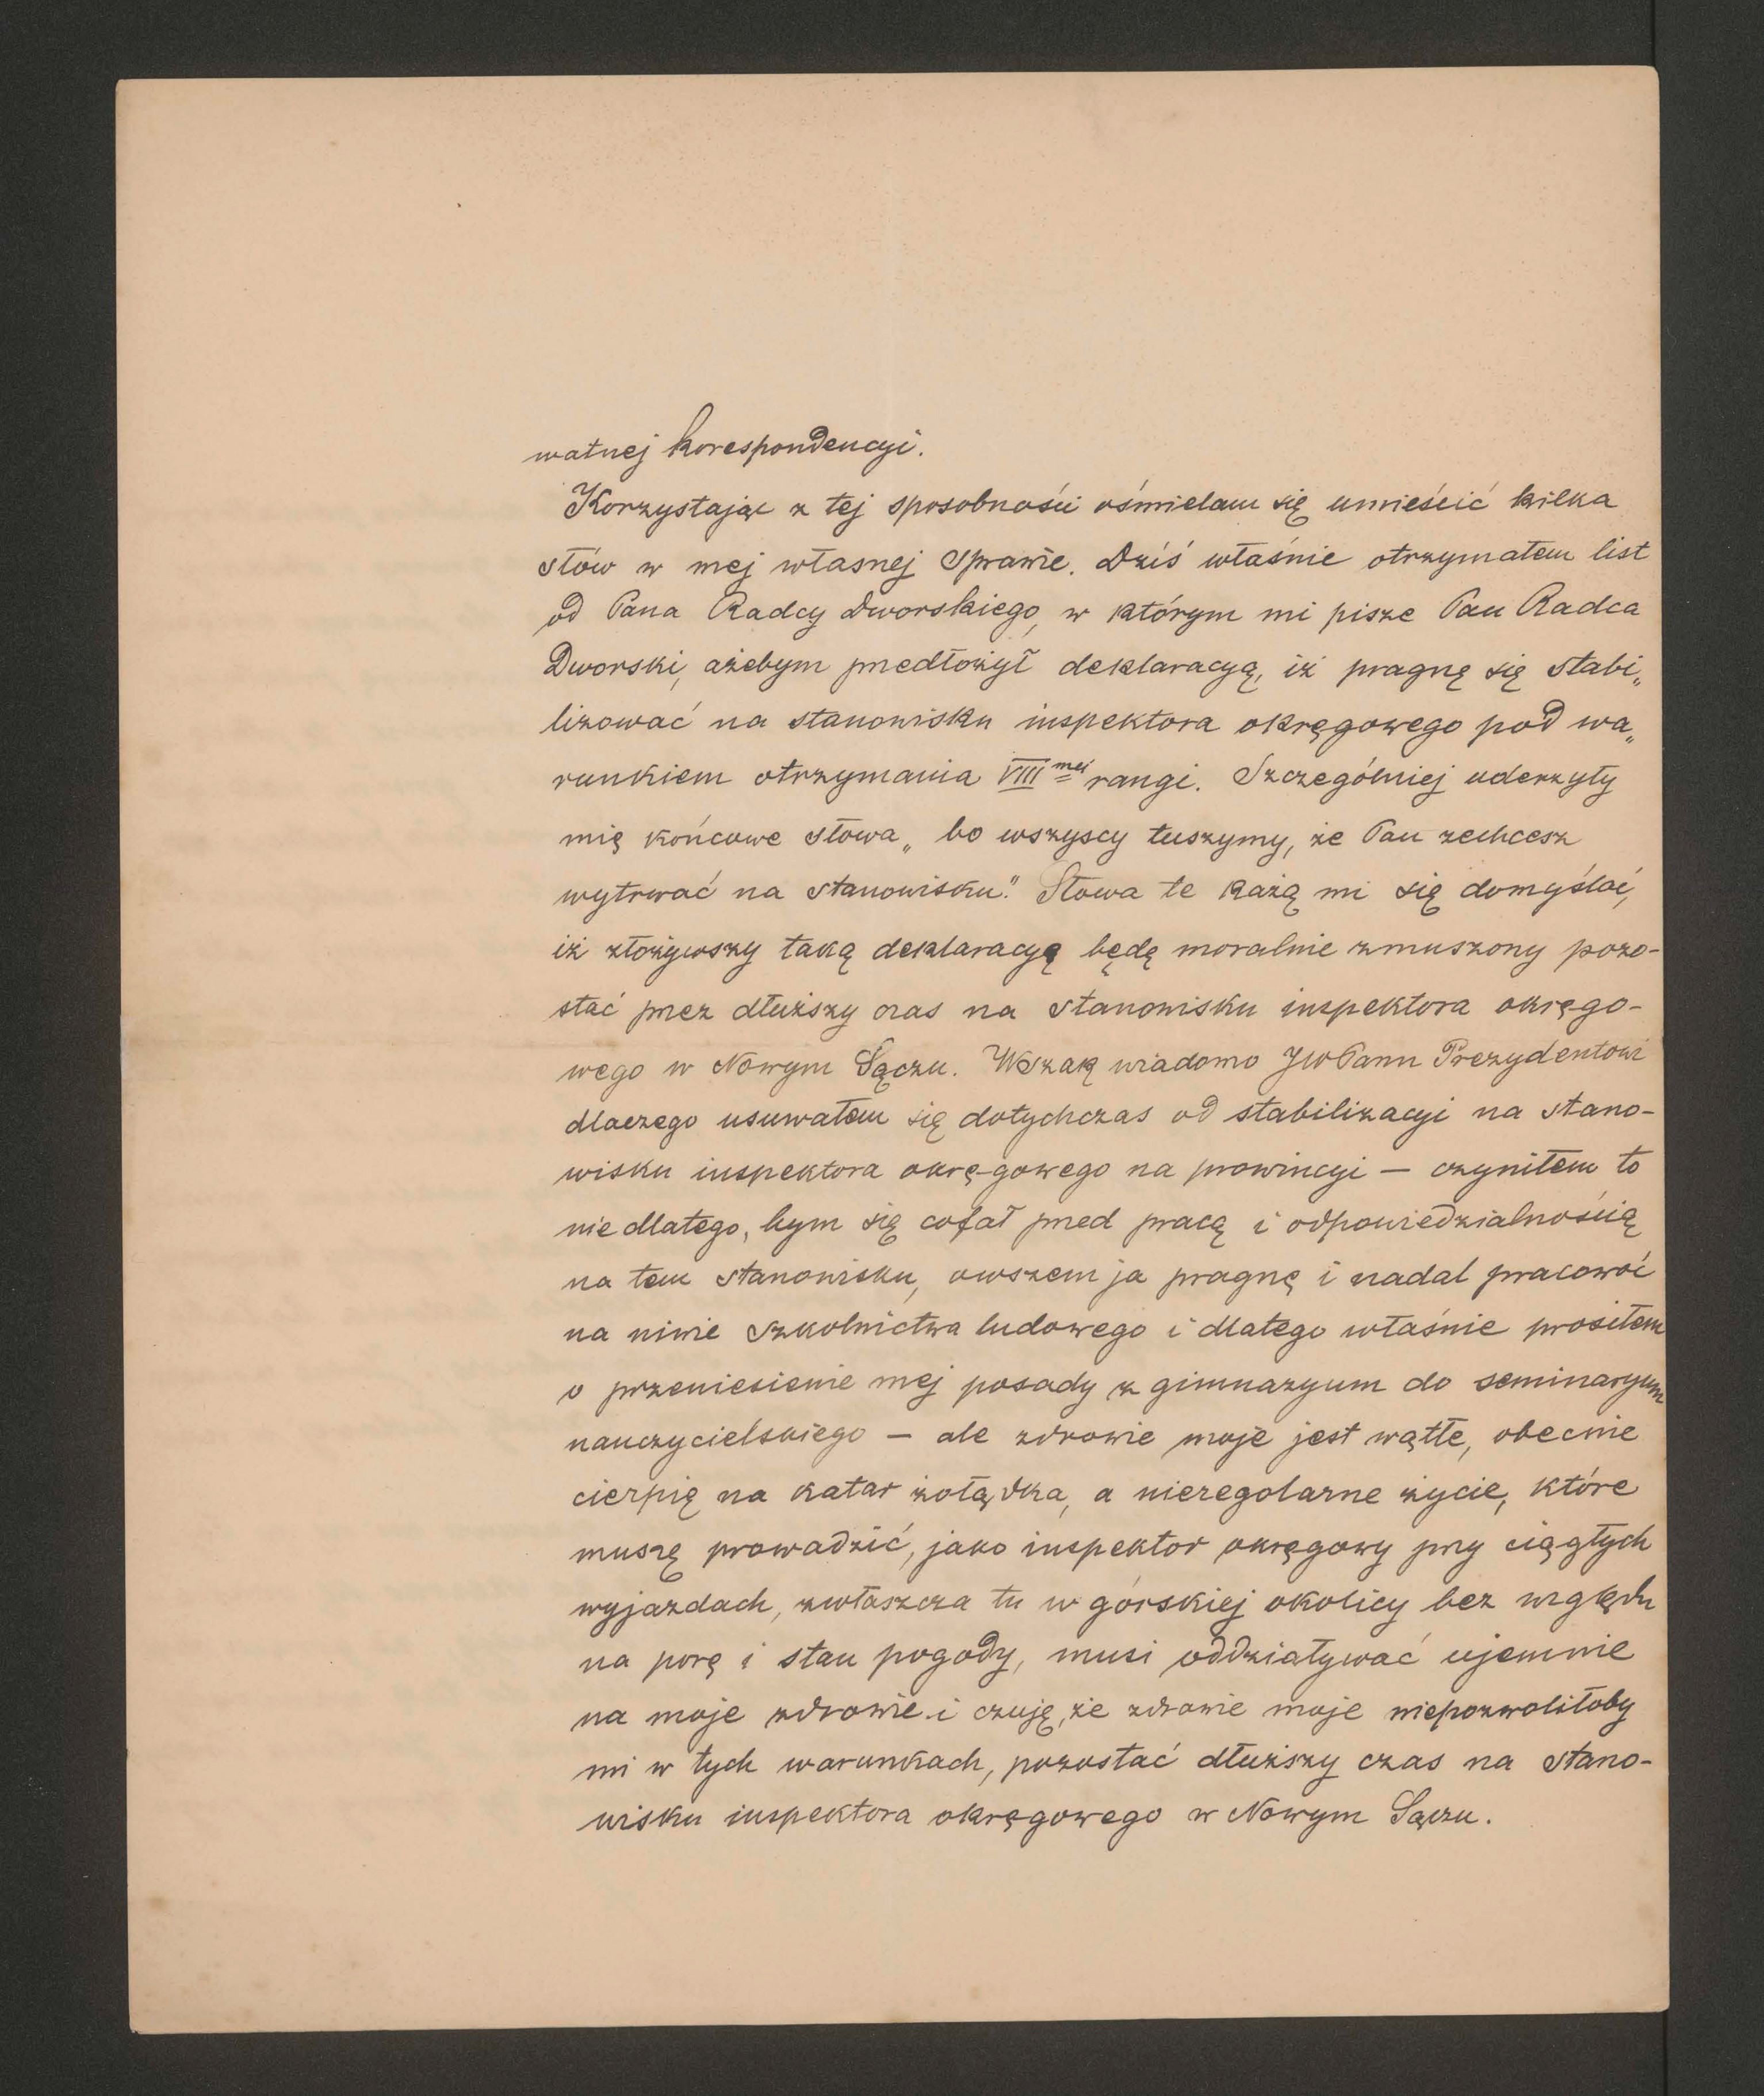 watnej korespondencyi.
Korzystając z tej sposobności ośmielam się umieścić kilka
słów w mej własnej sprawie. Dziś właśnie otrzymałem list
od Pana Radcy Dworskiego, w którym mi pisze Pan Radca
Dworski, ażebym predłożył deklaracyą, iż pragnę się stabi„
lizować na stanowisku inspektora okręgowego pod wa„
runkiem otrzymania VIII mej rangi. Szczególniej uderzyły
mię końcowe słowa „bo wszyscy tuszymy, że Pan zechcesz
wytrwać na stanowisku." Słowa te każą mi się domyślać,
iż złożywszy taką deklaracyę będę moralnie zmuszony pozo-
stać przez dłuższy czas na stanowisku inspektora okręgo-
wego w Nowym Sączu. Wszak wiadomo JWPanu Prezydentowi
dlaczego usuwałem się dotychczas od stabilizacyi na stano-
wisku inspektora okręgowego na prowincyi — czyniłem to
nie dlatego, bym się cofał przed pracą i odpowiedzialnością
na tem stanowisku, owszem ja pragnę i nadal pracować
na niwie szkolnictwa ludowego i dlatego właśnie prosiłem
o przeniesienie mej posady z gimnazyum do seminaryum
nauczycielskiego — ale zdrowie moje jest wątłe, obecnie
cierpię na katar żołądka, a nieregolarne życie, które
muszę prowadzić, jako inspektor okręgowy przy ciągłych
wyjazdach, zwłaszcza tu w górskiej okolicy bez względu
na porę i stan pogody, musi oddziaływać ujemnie
na moje zdrowie i czuję, że zdrowie moje niepozwoliłoby
mi w tych warunkach, pozostać dłuższy czas na stano-
wisku inspektora okręgowego w Nowym Sączu.